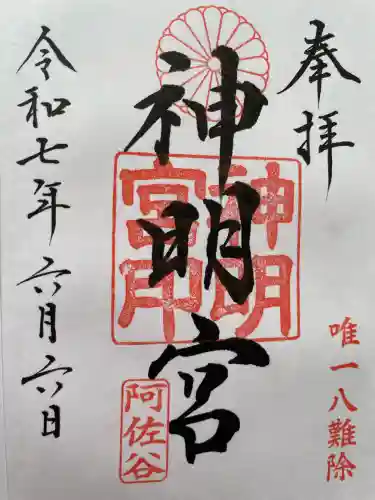 奉拝
唯一八難除
神明宮
神明宮印
阿佐谷
令和七年六月六日